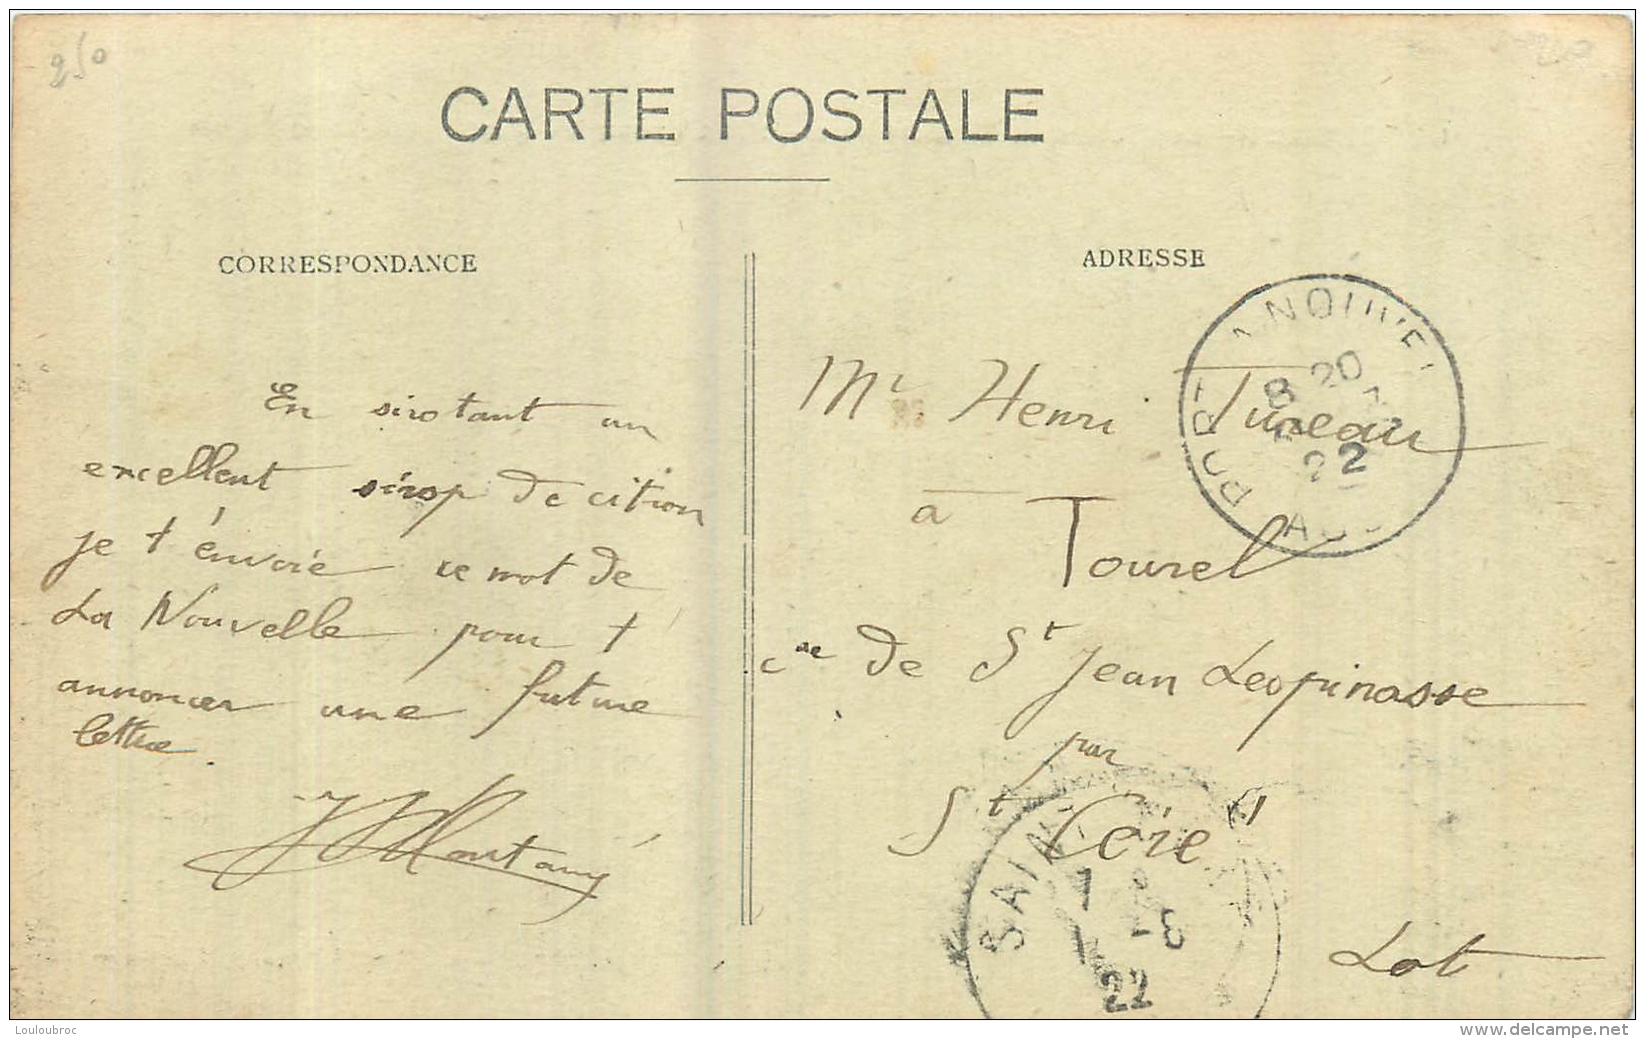 250
CARTE POSTALE
CORRESPONDANCE
En sirotant un
excellent sirop de citron
je t'envoie ce mot de
La Nouvelle pour t'
annoncer une future
lettre.
ADRESSE
Mr Henri Tureau
à Tourel
Cne de St Jean Lespinasse
par
St Céré
Lot
PORT LA NOUVEL
8 20
22
AUDE
SAINT
7
1 -8
22
Louloubroc
www.delcampe.net